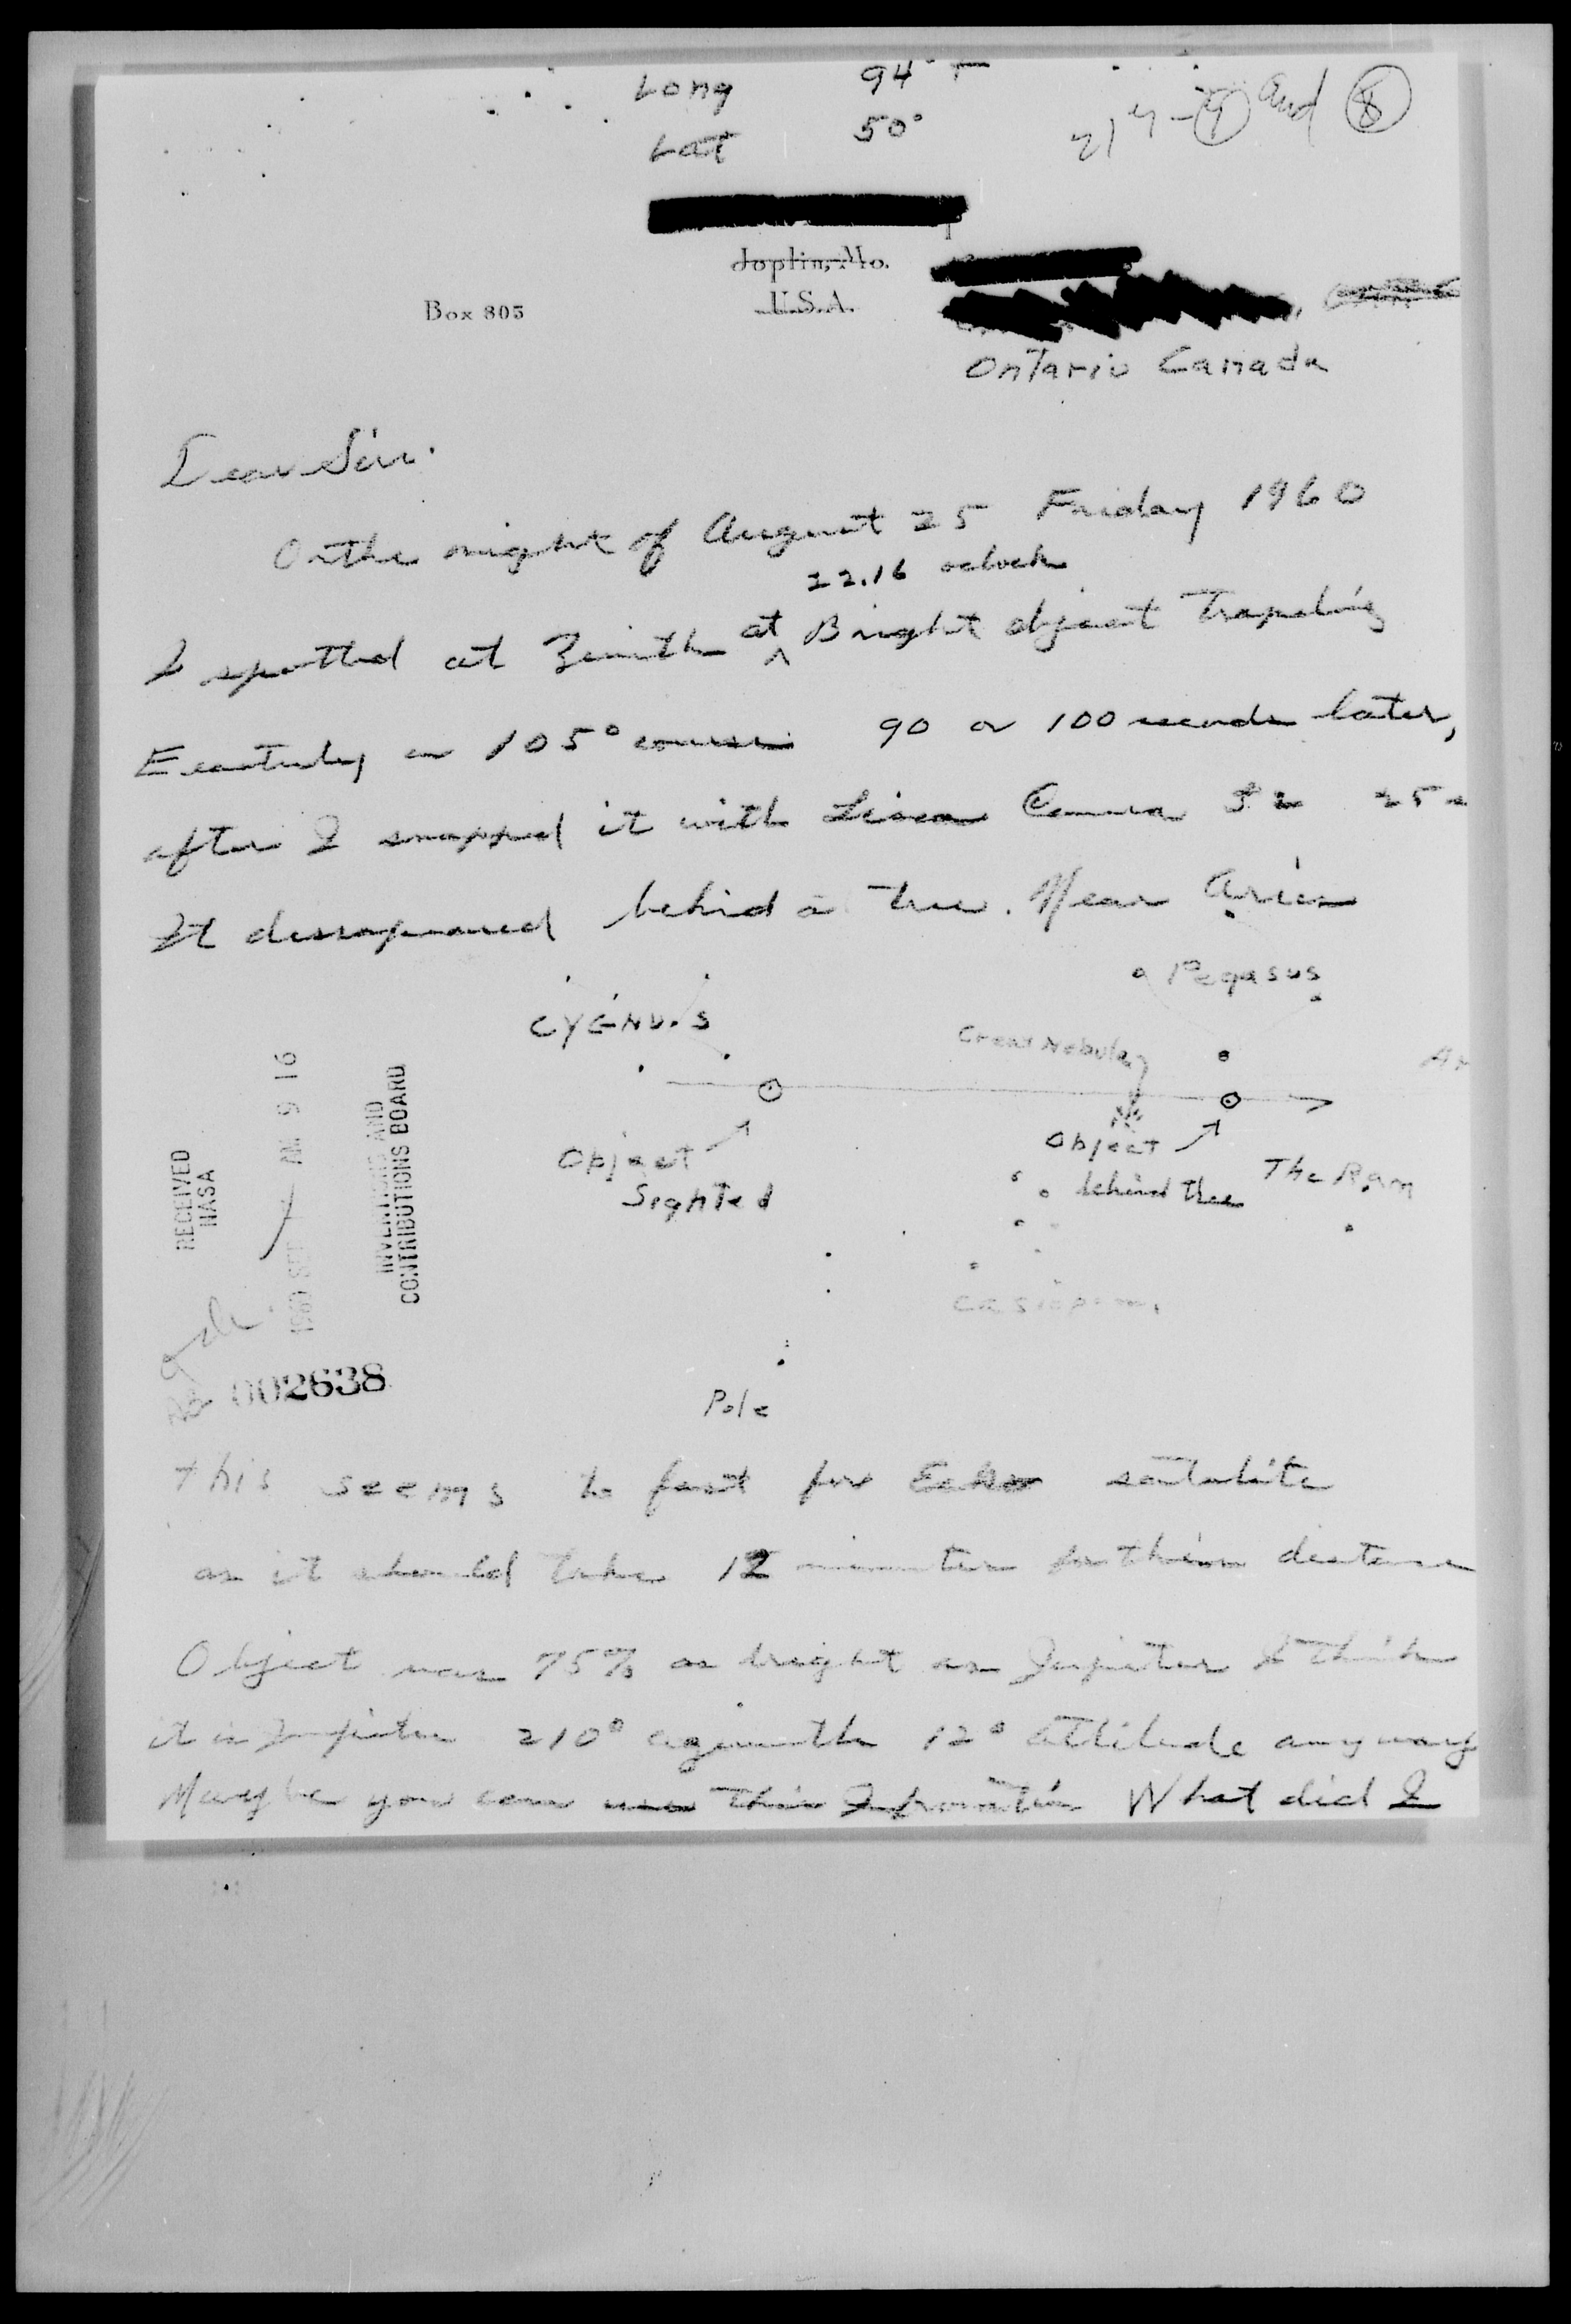 Long 94°
Lat 50°
and 8
Joplin, Mo.
U.S.A.
Box 805
Ontario Canada
Dear Sir.
On the night of August 25 Friday 1960
22.16 oclock
I spotted at Zenith at Bright object Traveling
Eeasterly on 105° course 90 or 100 seconds later,
after I snapped it with Camera 25
It dissapeared behind a tree. Near Aries
Pegasus
CYGNUS
Great Nebula
Object
Sighted
Object
behind tree
The Ram
Casiopea
Pole
RECEIVED
NASA
1960 SEP AM 9 16
INVENTIONS AND
CONTRIBUTIONS BOARD
002638
this seems to fast for Echo satalite
as it should take 12 minutes for this distance
Object was 75% as bright as Jupiter I think
it is Jupiter 210° azimuth 12° altitude anyway
Maybe you can use this Information What did I